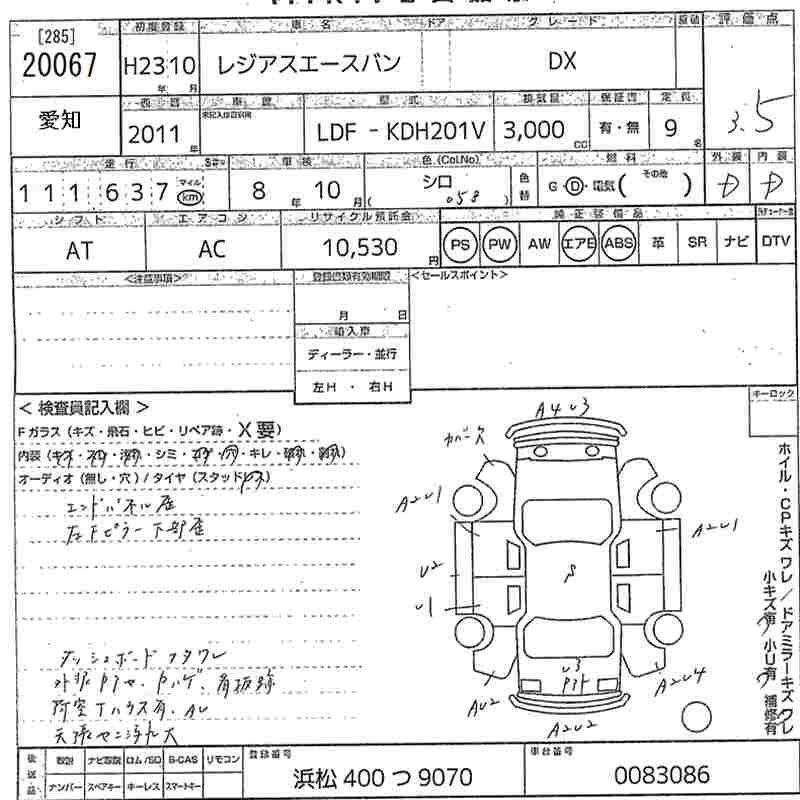 初度登録 車名 ドア グレード 評価点
[285]
20067 H23 10 レジアスエースバン DX
年 月
3.5
愛知 車歴 型式 排気量 保証書 定員
2011 年 LDF - KDH201V 3,000 cc 有・無 9 名
走行 車検 色(Col.No) 燃料 外装 内装
111637 マイル km 8 年 10 月 シロ ( 058 ) 色替 G・D・電気( その他 ) D D
シフト エアコン リサイクル預託金 純正装備品
AT AC 10,530 円 PS PW AW エアB ABS 革 SR ナビ DTV
<注意事項> 登録書類有効期限 <セールスポイント>
月 日
輸入車
ディーラー・並行
左H ・ 右H
キーロック
< 検査員記入欄 >
Fガラス(キズ・飛石・ヒビ・リペア跡・X要)
オーディオ(無し・穴)/タイヤ(スタッドレス)
エンドパネル歪
左Fピラー下部歪
ダッシュボードフタワレ
A4U3
カバー欠
A2U1
A2U1
U2
U1
S
U3
AU2
A2U4
A2U2
ホイル・CPキズワレ/ドアミラーキズワレ
小キズ有 小U有 補修有
後送品 取説 ナビ取説 ロム/SD B-CAS リモコン 登録番号 車台番号
ナンバー スペアキー キーレス スマートキー 浜松 400 つ 9070 0083086